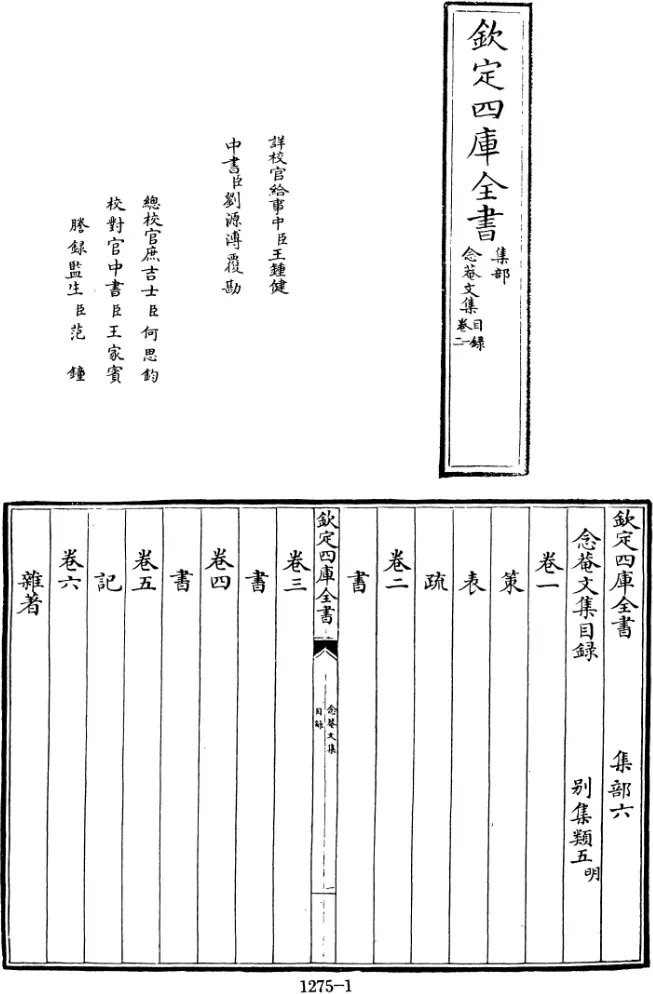 欽定四庫全書
集部
念菴文集
目録
卷一
二
詳校官給事中臣王鍾健
中書臣劉源溥覆勘
總校官庶吉士臣何思鈞
校對官中書臣王家賓
謄録監生臣范鐘
欽定四庫全書 集部六
念菴文集目録 別集類五明
卷一
策
表
疏
卷二
書
欽定四庫全書
念菴文集
目録
一
卷三
書
卷四
書
卷五
記
卷六
雜著
1275-1